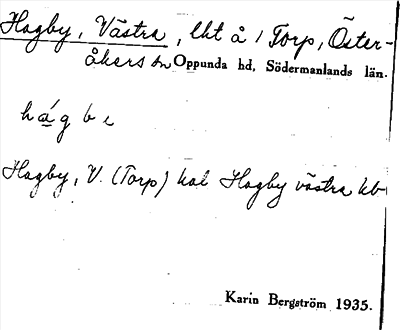 Hagby, Västra, lht å / Torp, Öster-
åkers sn Oppunda hd, Södermanlands län.
hágbe
Hagby, V. (Torp) kal Hagby västra kb
Karin Bergström 1935.